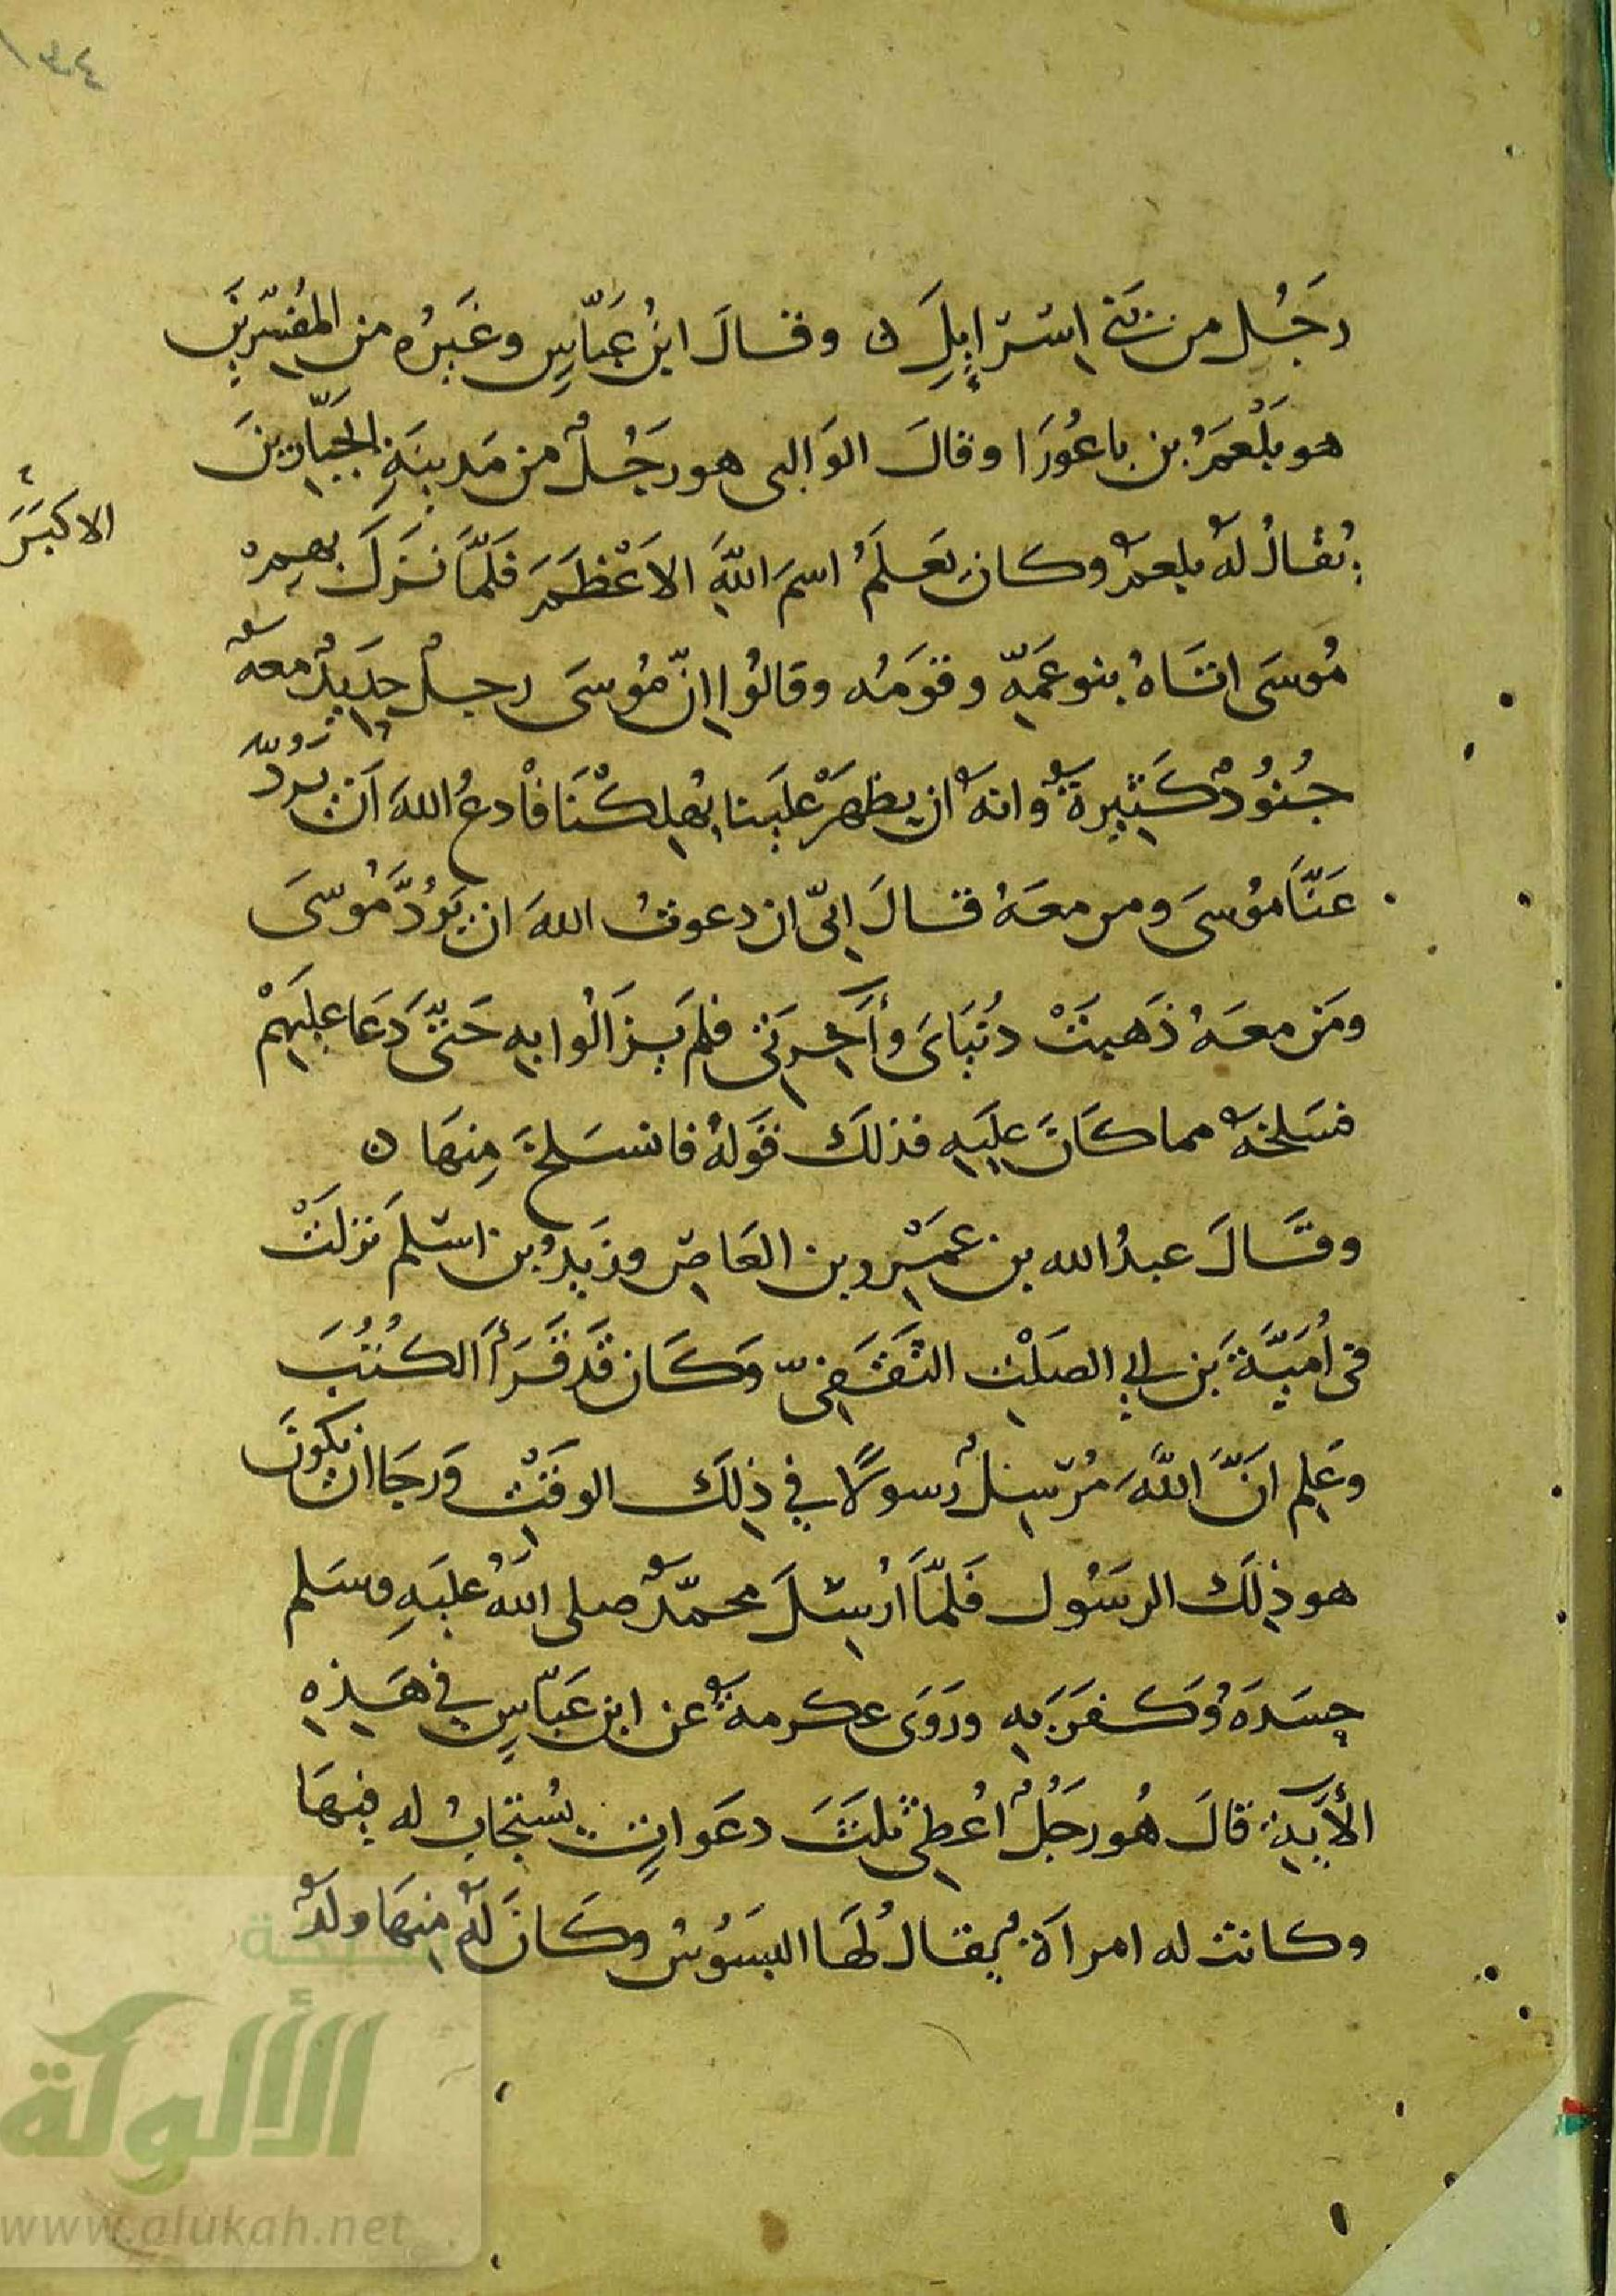 رَجُل من بَني اسْرإيلَ ن وقالَ ابنُ عَبّاسٍ وغَيرُه من المُفسّرينَ
هو بَلْعَمُ بن باعُورَا وقالَ الوَالبى هو رَجُلٌ من مَدينَةِ الجبّارينَ
يُقالُ لهُ بلعمٌ وكان يَعلَمُ اسمَ اللهِ الاعْظمَ فَلمَّا نَزَلَ بهم
الاكبَرَ
مُوسَى اتَاهُ بنو عَمّهِ وقَومُه وقالُوا انّ مُوسَى رجلٌ حديدٌ معهُ
جُنُودٌ كَثيرةٌ وانهُ ان يظهَرْ علَينا يُهلكْنَا فْادعُ اللهَ اَن يردّ
عَنّا مُوسَى ومن معَهُ قالَ انّى ان دعوتُ اللهَ ان يَرُدَّ مُوسَى
ومَن معَهُ ذَهبَتْ دنيَاىَ وأخرَتى فلم يَزالُوا بهِ حَتّى دَعَا علَيهمْ
فسَلخهُ مما كَانَ علَيهِ فذلكَ قولهُ فانسَلخَ مِنهَا ن
وقَالَ عبدُ الله بن عمْرو بن العَاص وزَيدُ بن اسْلمَ نزلَتْ
فى اُميَّةَ بَن ابي الصَلْتِ الثقَفىّ وكَان قَد قَرَأَ الكُتُبَ
وعَلِم انَّ اللهَ مُرْسِلٌ رسولًا في ذلِكَ الوقَتْ ورَجَا ان يكونَ
هو ذلِكَ الرسَول فَلمّا اُرْسِلَ محمّدٌ صلى اللهُ عليَهِ وسَلم
حسَدَهُ وكَفَرَ بهِ ورَوَى عكرمةُ عن ابن عَبّاسٍ في هَذِهِ
الأيَةِ قالَ هُو رَجُلٌ اُعْطِىَ ثلثَ دعَواتٍ يُستجَابُ له فيهَا
وكانت له امرأةٌ يُقالُ لهَا البسَوُسُ وكَانَ لهُ منهَا ولَدٌ
شبكة
الألوكة
www.alukah.net